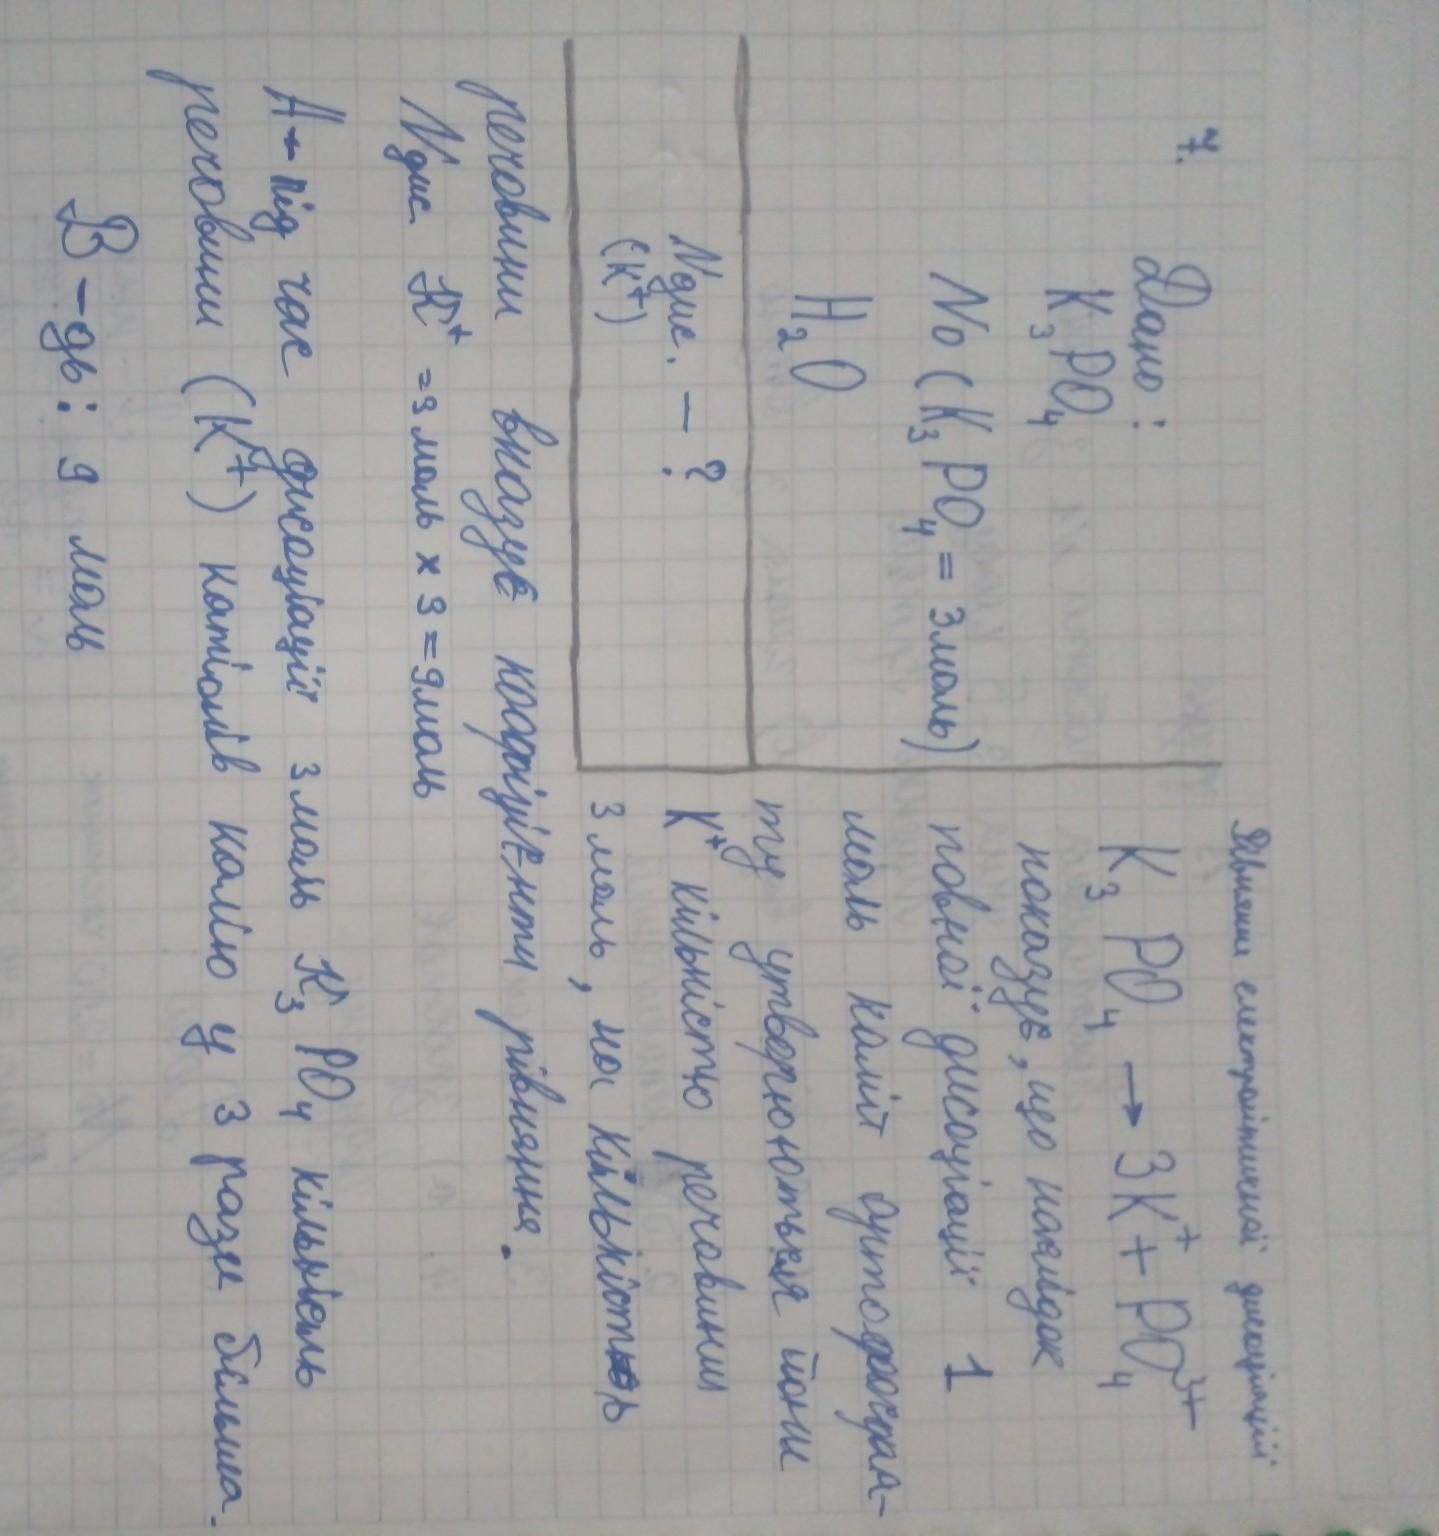 7. Дано:
K₃PO₄
No (K₃PO₄ = 3 моль)
H₂O
Nдис. - ?
(K⁺)
Рівняння електролітичної дисоціації
K₃PO₄ → 3K⁺ + PO₄³⁺
показує, що наслідок
повної дисоціації 1
моль калій ортофосфа-
ту утворюються йони
K⁺ кількістю речовини
3 моль, на кількість
речовини вказує коефіцієнти рівняння.
Nдис. K⁺ = 3 моль x 3 = 9 моль
А - під час дисоціації 3 моль K₃PO₄ кількість
речовини (K⁺) катіонів калію у 3 рази більша.
В - дь: 9 моль